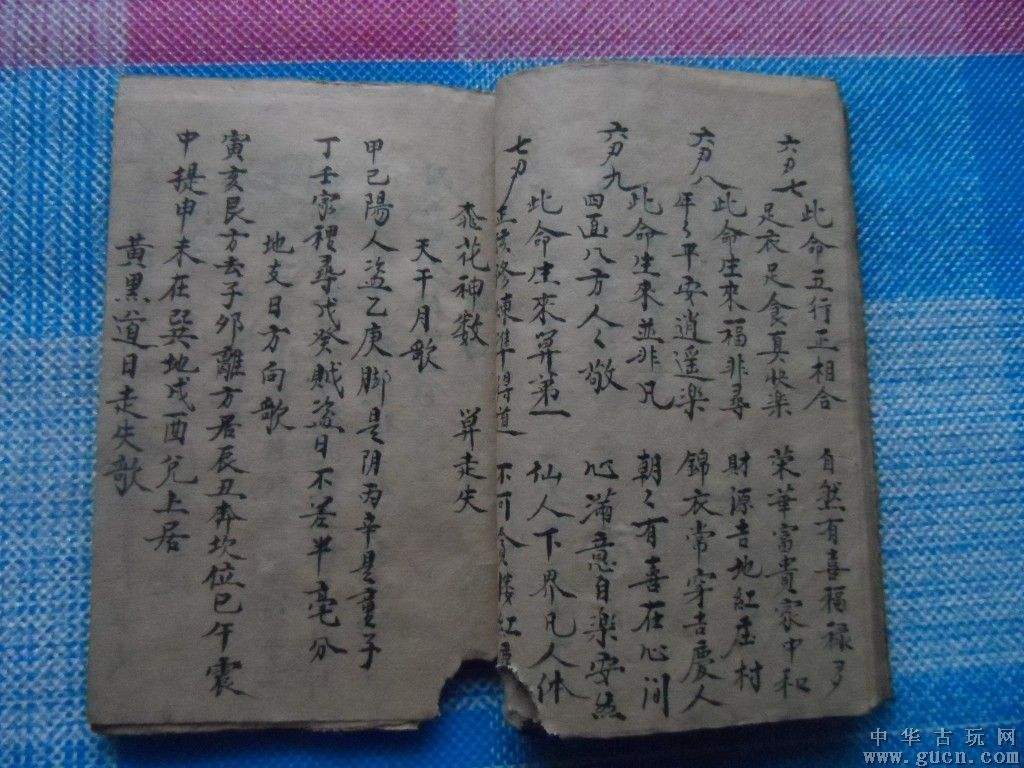 六刀七
此命五行正相合 自然有喜福禄了
足衣足食真快楽 荣華富貴家中和
六刀八
此命生來福非尋 財源吉地紅庄村
年々平安逍遥楽 錦衣常穿吉慶人
六刀九
此命生來並非凡 朝々有喜在心间
四面八方人々敬 心满意自楽安
七刀
此命生來算第一 仙人下界凡人体
修煉準得道 不可貪 紅
花神数 算走失
天干月歌
甲己陽人盗乙庚脚是阴丙辛是童子
丁壬家裡尋戊癸賊盗日不差半毫分
地支日方向歌
寅亥艮方去子卯離方居辰丑奔坎位巳午震
中提申未在巽地戍酉兌上居
黃黑道日走失歌
中华古玩网
www.gucn.com